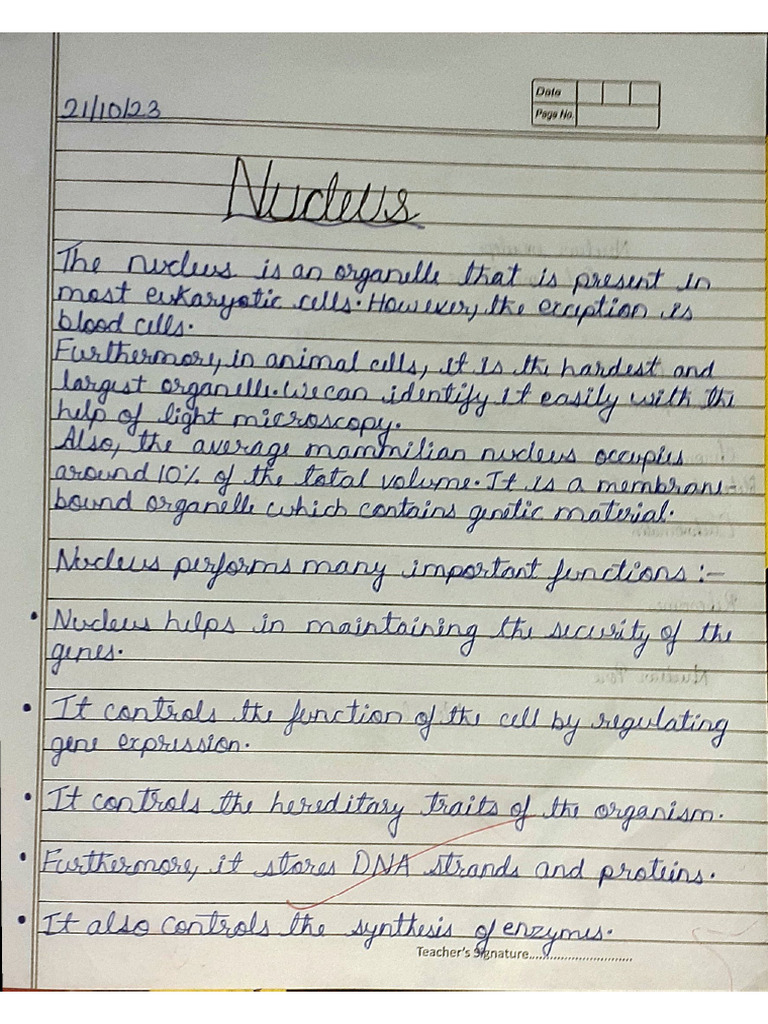 Date
21/10/23
Page No.
Nucleus
The nucleus is an organelle that is present in
most eukaryotic cells. However, the exception is
blood cells.
Furthermore, in animal cells, it is the hardest and
largest organelle. We can identify it easily with the
help of light microscopy.
Also, the average mammilian nucleus occupies
around 10% of the total volume. It is a membrane-
bound organelle which contains genetic material.
Nucleus performs many important functions :-
• Nucleus helps in maintaining the security of the
genes.
• It controls the function of the cell by regulating
gene expression.
• It controls the hereditary traits of the organism.
• Furthermore, it stores DNA strands and proteins.
• It also controls the synthesis of enzymes.
Teacher's Signature..............................